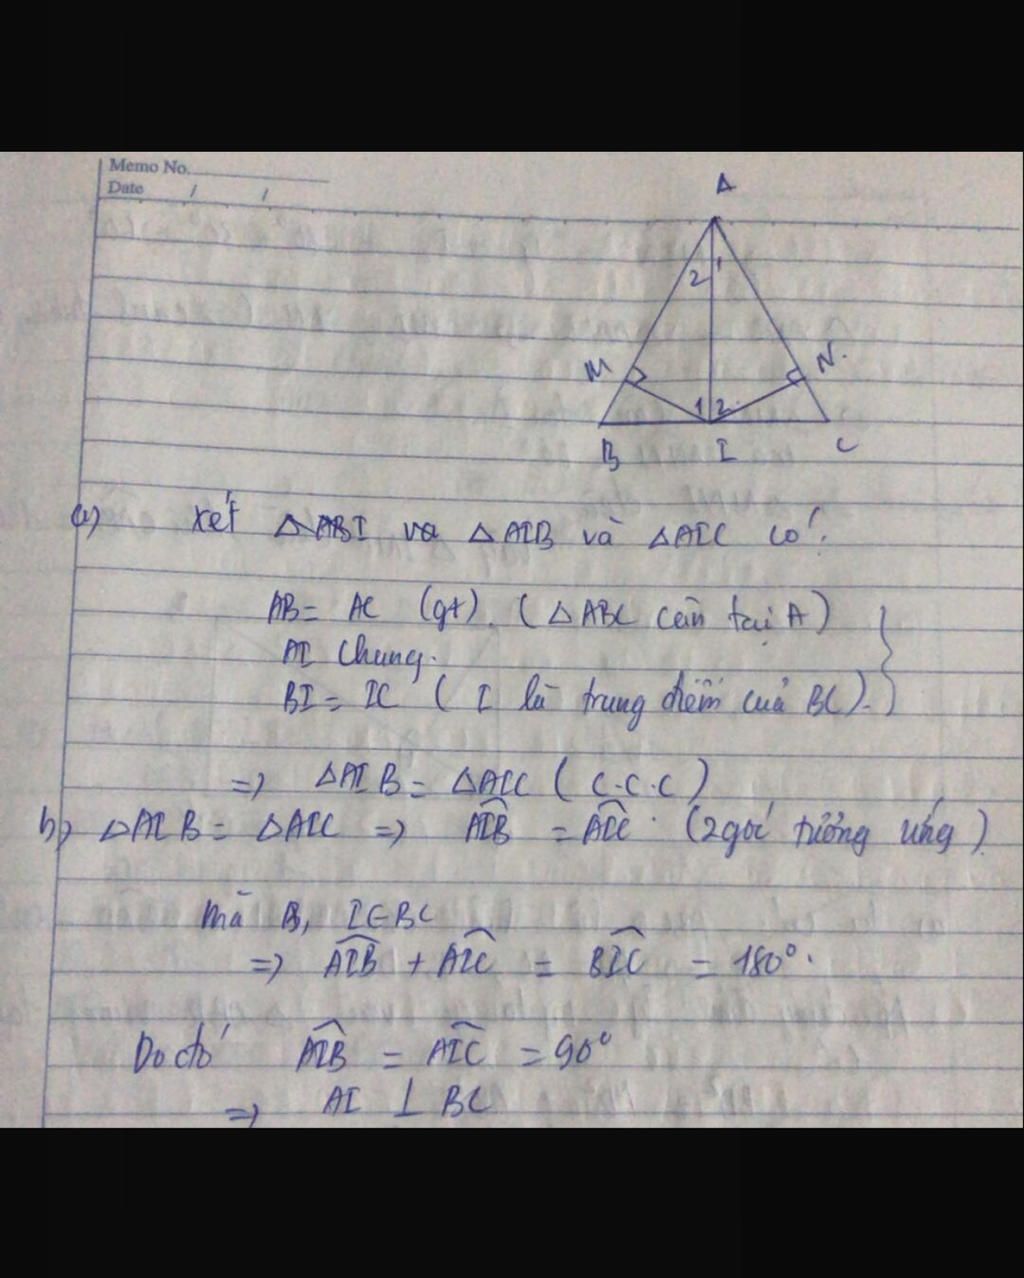 Memo No.
Date / /
A
2 1
M N.
1 2
B I C
a) Xét △ABI và △AIB và △AIC có:
AB = AC (gt). (△ABC cân tại A)
AI chung.
BI = IC ( I là trung điểm của BC).
=> △AIB = △AIC ( c.c.c )
b) △AIB = △AIC => AIB = AIC . (2 góc tương ứng)
mà B, I ∈ BC
=> AIB + AIC = BIC = 180°.
Do đó AIB = AIC = 90°
=> AI ⊥ BC